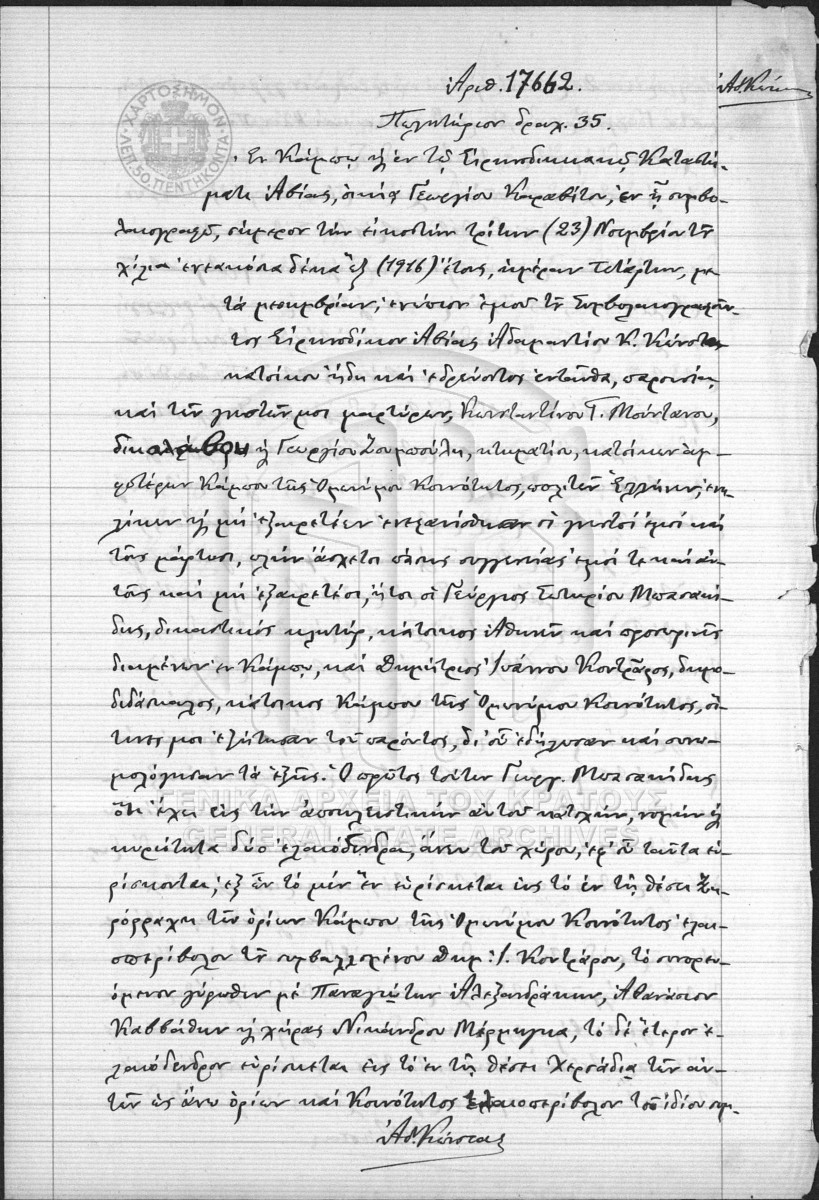 Ἀριθ. 17662.
Ἀδ. Κώνστας
Πωλητήριον δραχ. 35.
ΧΑΡΤΟΣΗΜΟΝ
ΛΕΠ. 50. ΠΕΝΤΗΚΟΝΤΑ
Ἐν Κάμπῳ ᾗ ἐν τῷ Εἰρηνοδικειακῷ Καταστή-
ματι Ἀβίας, οἰκίᾳ Γεωργίου Καραβίτου, ἐν ᾗ συμβο-
λαιογραφῶ, σήμερον τὴν εἰκοστὴν τρίτην (23) Νοεμβρίου τοῦ
χίλια ἐνεακόσια δέκα ἓξ (1916) ἔτους, ἡμέραν Τετάρτην, με-
τὰ μεσημβρίαν, ἐνώπιον ἐμοῦ τοῦ Συμβολαιογραφοῦν-
τος Εἰρηνοδίκου Ἀβίας Ἀδαμαντίου Κ. Κώνστα
κατοίκου ἤδη καὶ ἑδρεύοντος ἐνταῦθα, παρουσίᾳ
καὶ τῶν γνωστῶν μοι μαρτύρων, Κωνσταντίνου Γ. Μούντανου,
δικολάβου ᾗ Γεωργίου Ζουμπούλη, κτηματίου, κατοίκων ἀμ-
φοτέρων Κάμπου τῆς Ὁμωνύμου Κοινότητος, πολιτῶν Ἑλλήνων, ἐνη-
λίκων ᾗ μὴ ἐξαιρετέων ἐνεφανίσθησαν οἱ γνωστοί ἐμοὶ καὶ
τοῖς μάρτυσι, πλὴν ἄσχετοι πάσης συγγενείας ἐμοί τε καὶ αὐ-
τοῖς καὶ μὴ ἐξαιρετέοι, ἤτοι οἱ Γεώργιος Σωτηρίου Μπασακί-
δης, δικαστικός κλητήρ, κάτοικος Ἀθηνῶν καὶ προσωρινῶς
διαμένων ἐν Κάμπῳ, καὶ Δημήτριος Ἰωάννου Κοντράρος, δημο-
διδάσκαλος, κάτοικος Κάμπου τῆς Ὁμωνύμου Κοινότητος, οἵ-
τινες μοι ἐζήτησαν τοῦ παρόντος, δι' οὗ ἐδήλωσαν καὶ συνω-
μολόγησαν τὰ ἑξῆς. Ὁ πρῶτος τούτων Γεώργ. Μπασακίδης
ὅτι ἔχει εἰς τὴν ἀποκλειστικὴν αὐτοῦ κατοχήν, νομὴν ᾗ
κυριότητα δύο ἐλαιόδενδρα, ἄνευ τοῦ χώρου, ἐφ' οὗ ταῦτα εὑ-
ρίσκονται, ἐξ ὧν τὸ μὲν ἓν εὑρίσκεται εἰς τὸ ἐν τῇ θέσει Ξη-
ρόρραχη τῶν ὁρίων Κάμπου τῆς Ὁμωνύμου Κοινότητος ἐλαι-
οπερίβολον τοῦ συμβαλλομένου Δημ: Ἰ. Κοντράρου, τὸ συνορευ-
όμενον γύρωθεν μὲ Παναγιώτην Ἀλεξανδράκην, Ἀθανάσιον
Καββάθην ᾗ χήρας Νικάνδρου Μέρμηγκα, τὸ δὲ ἕτερον ἐ-
λαιόδενδρον εὑρίσκεται εἰς τὸ ἐν τῇ θέσει Χερσάδια τῶν αὐ-
τῶν ὡς ἄνω ὁρίων καὶ Κοινότητος ἐλαιοπερίβολον τοῦ ἰδίου συμ-
Ἀδ. Κώνστας
ΓΕΝΙΚΑ ΑΡΧΕΙΑ ΤΟΥ ΚΡΑΤΟΥΣ
GENERAL STATE ARCHIVES